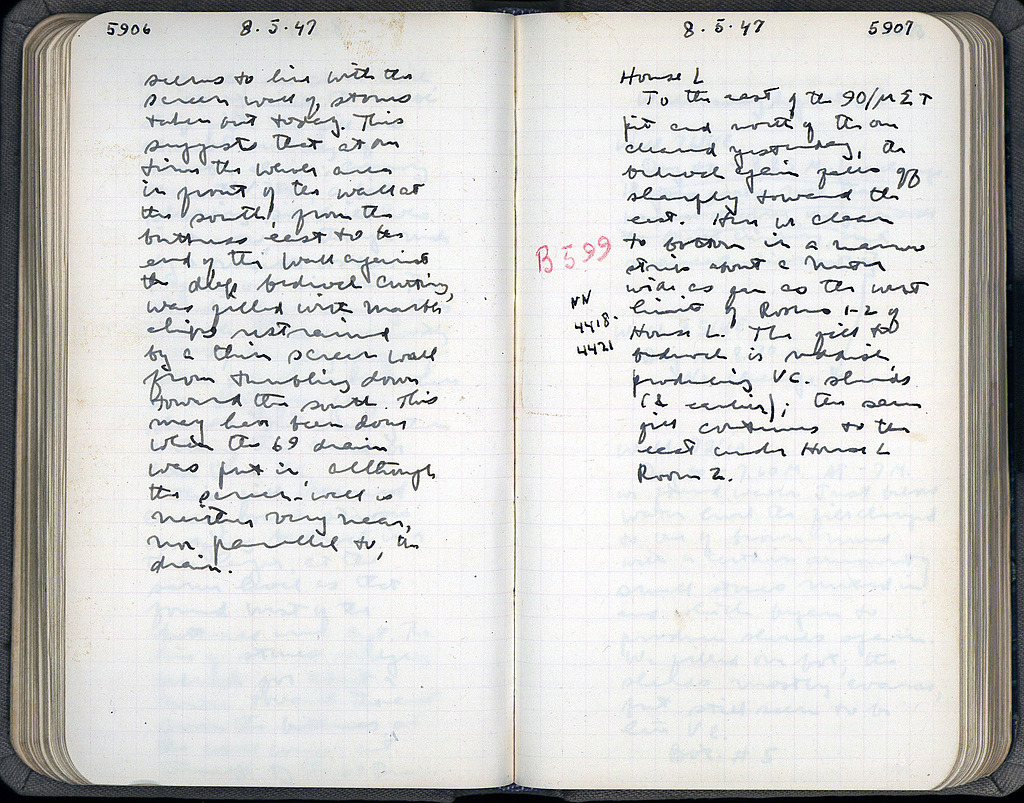 5906 8.5.47
seems to line with the
screen wall of stones
taken out today. This
suggests that at one
time the whole area
in front of the wall at
the south, from the
buttress east to the
end of the wall against
the deep bedrock cutting,
was filled with marble
chips restrained
by a thin screen wall
from tumbling down
toward the south. This
may have been done
when the 69 drain
was put in although
the screen-wall is
neither very near,
nor parallel to, the
drain.
8.5.47 5907
House L
To the east of the 90/ΜΣΤ
pit and north of the one
cleared yesterday, the
bedrock again falls off
sharply toward the
east. Here we clean
to bottom in a narrow
strip about a meter
wide as far as the west
limit of Rooms 1-2 of
House L. The fill to
bedrock is reddish
producing VC. sherds
(& earlier); the same
fill continues to the
east under House L
Room 2.
B 599
NN
4418-
4421